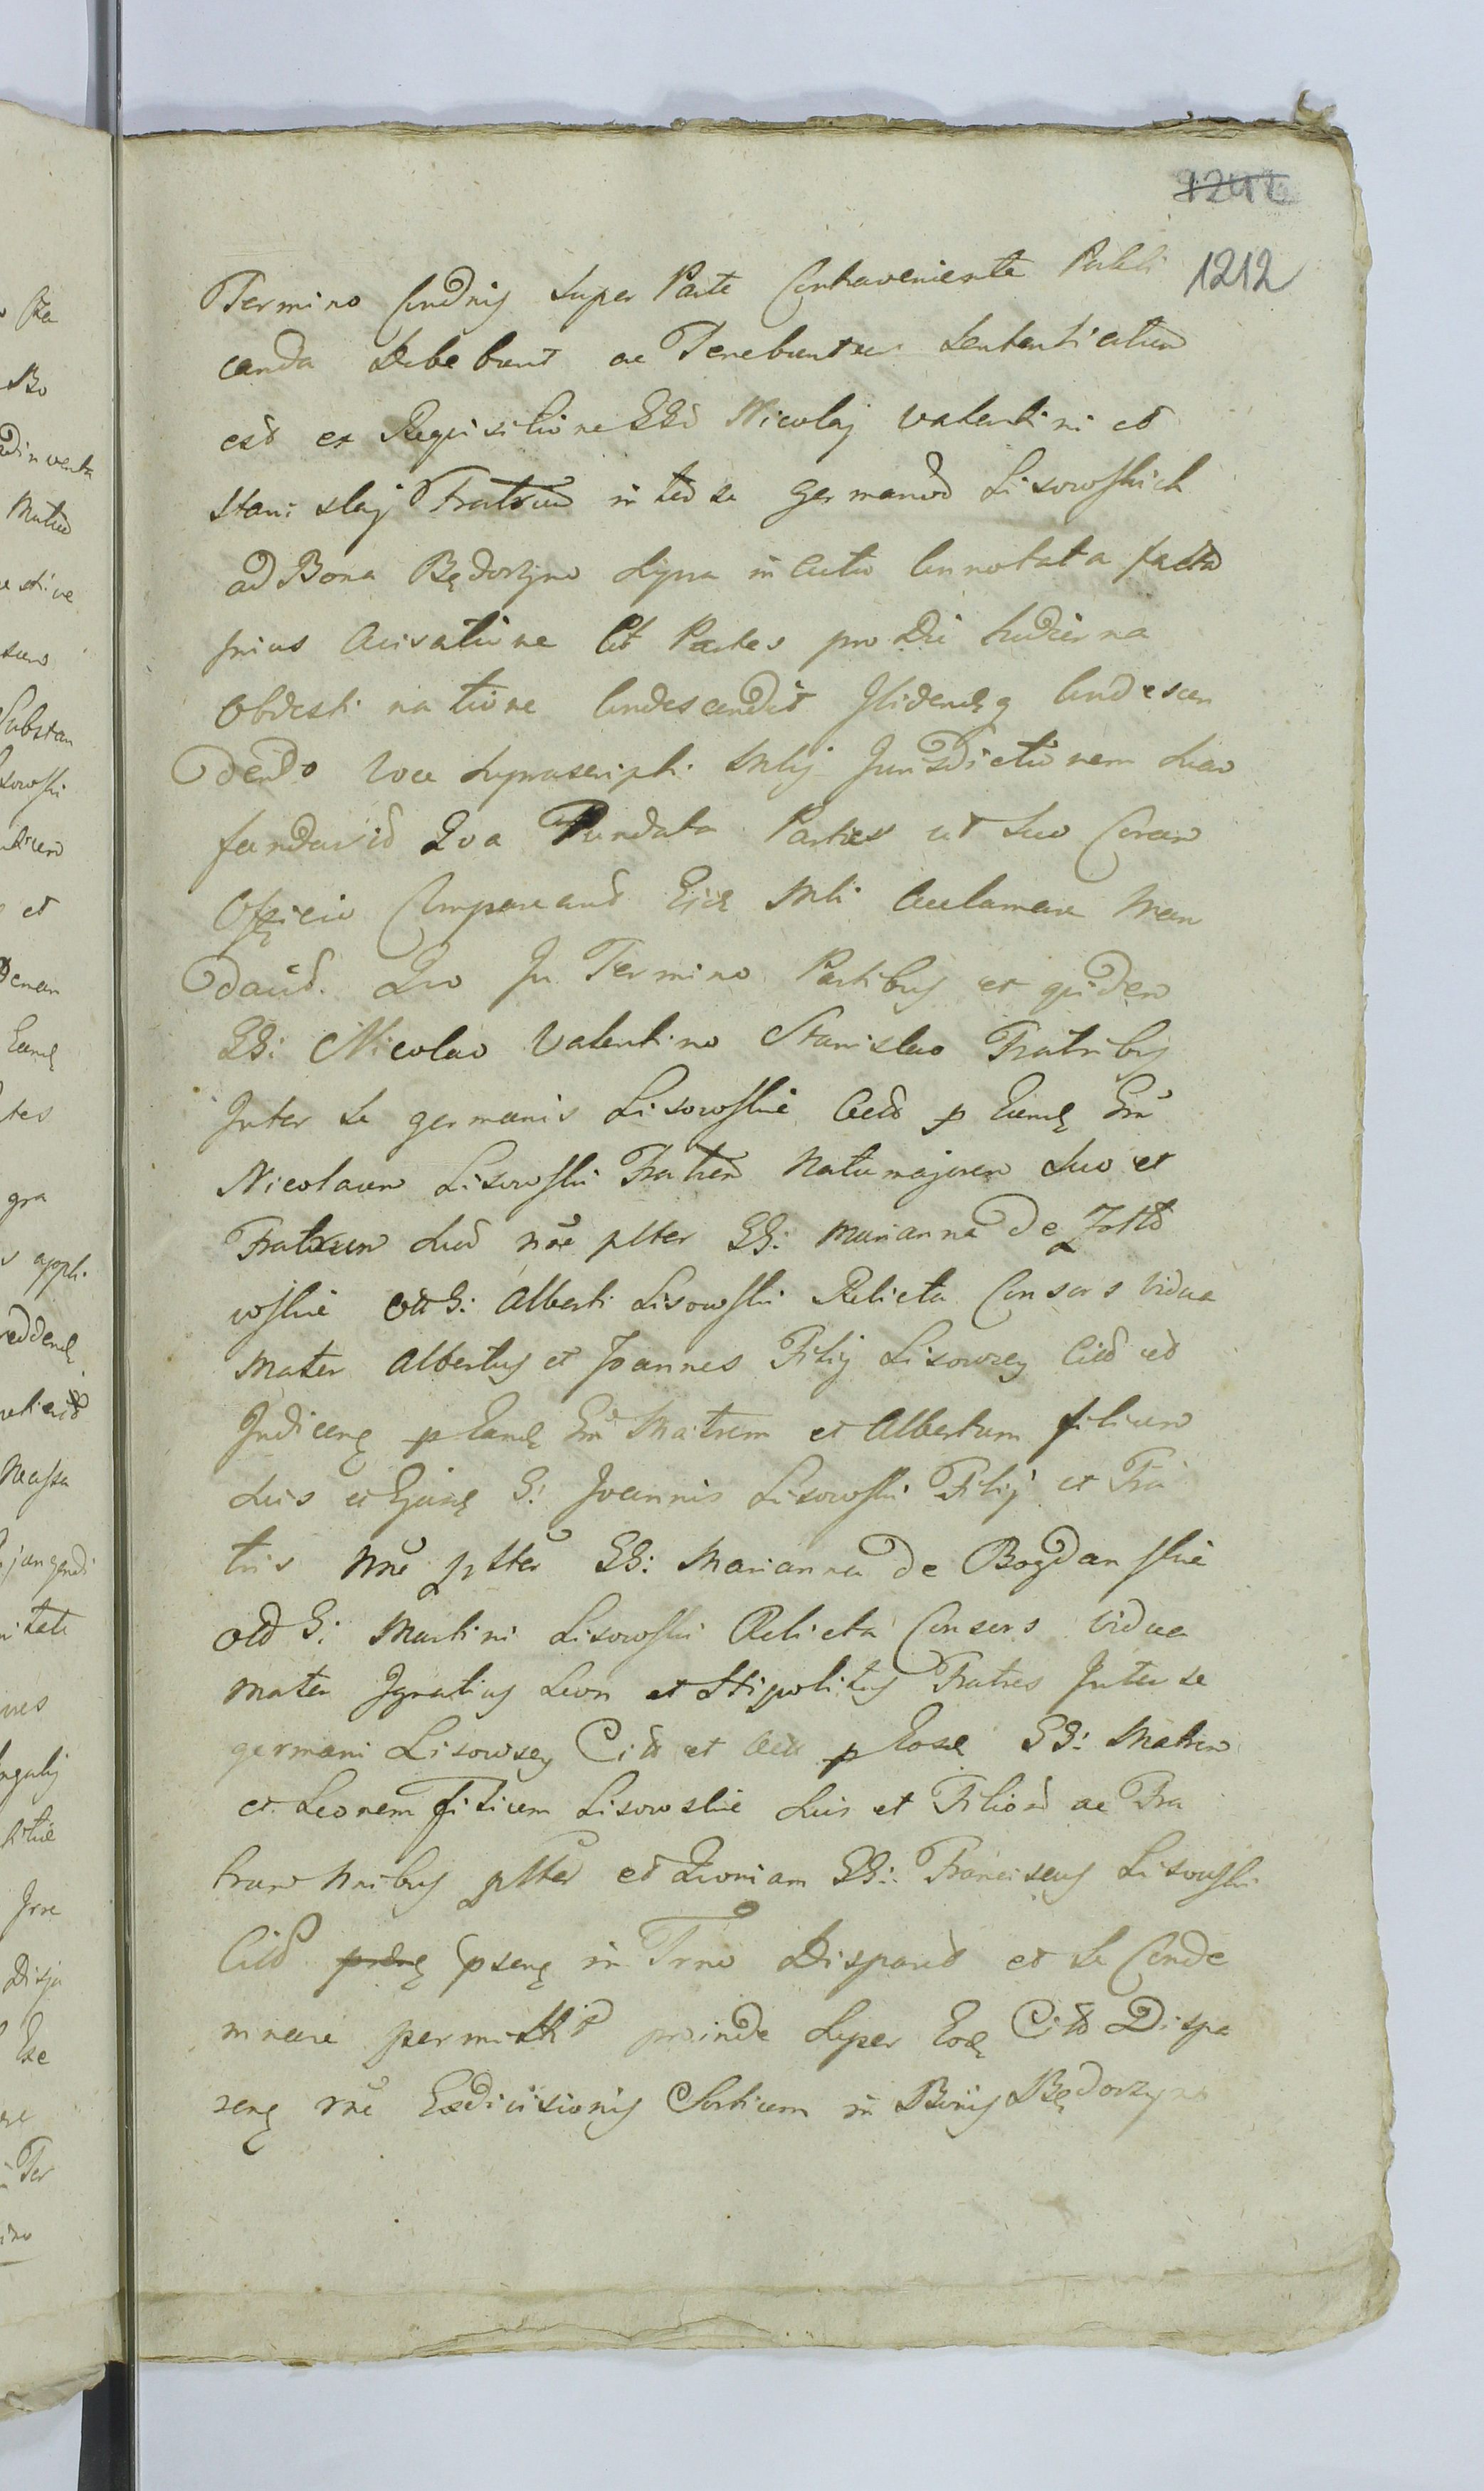 1242
1212
Termino Condnij super Parte Contraveniente Publi
canda Debebunt ac Tenebuntur Sententiatum
est ex Requisitione GGd Nicolaj Valentini et
Stanislaj Fratrum inter se germanod Lisowskich
ad Bona Będorzyno supra in Actu Annotata facta
prius Avisatione ad Partes pro Die hodierna
Obdestinatione Condescendit Ibidemq Condescen
dendo Voce suprascripti Mlij Jurisdictionem suam
fundavit Qva Fundata Partes ut suo Coram
Officio Compareant Ejd Mli Acclamare Man
davit. Quo In Termino Partibus et quidem
GG: Nicolao Valentino Stanislao Fratribus
Inter se germanis Lisowskie Act p Eund Gm
Nicolaum Lisowski Fratrem Natumajorem suo et
Fratrum suod nõe plter GG: Marianna De
wskie olt G: Alberti Lisowski Relicta Consors vidua
Mater Albertus et Joannes Filij Lisowscy Citt ad
Judicend p Eand Gm Matrem et Albertum filium
suis et Ejusd G: Joannis Lisowski Filij et Fra
tris Nne plter GG: Marianna de Bogdanskie
olt G: Martini Lisowski Relicta Consors vidua
Mater Ignatius Leon et Hipolitus Fratres Inter se
germani Lisowscy Citt et Act p Eosd GG: Matrem
et Leonem Filium Lisowskie suis et Filiord ac Fra
trum Nnibus plter et Qvoniam GG: Franciscus Lisowski
Citt in Trno Disparuit et se Conde
mnare permisit proinde super Eod Citt Dispa
rend rne Exdivisionis Sortium in Bonis Będorzyno